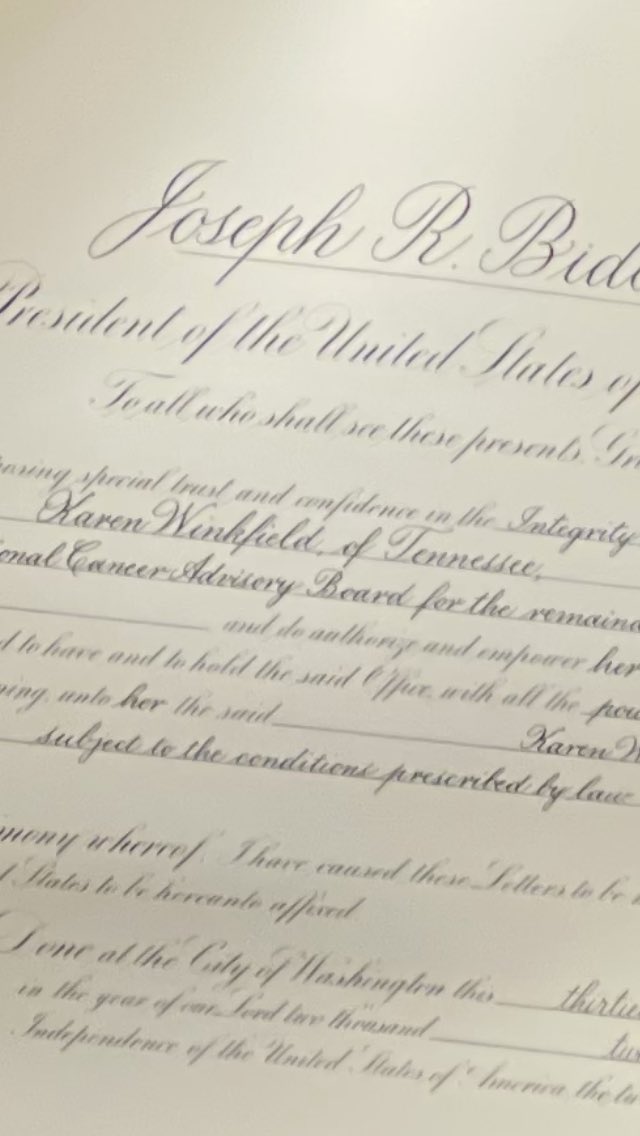 Joseph R. Bide
President of the United States of
To all who shall see these presents, Gre
posing special trust and confidence in the Integrity
Karen Winkfield, of Tennessee,
onal Cancer Advisory Board for the remaind
and do authorize and empower her
d to have and to hold the said Office, with all the pow
ning, unto her the said Karen W
subject to the conditions prescribed by law
mony whereof, I have caused these Letters to be
d States to be hereunto affixed
Done at the City of Washington this thirtie
in the year of our Lord two thousand tw
Independence of the United States of America the tw